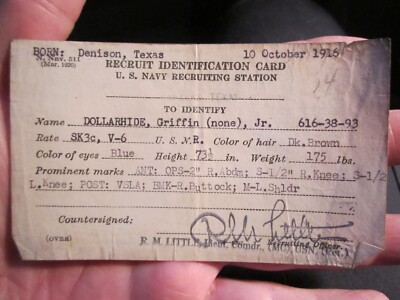 BORN: Denison, Texas 10 October 1916
N. Nav. 511
(Mar. 1920)
RECRUIT IDENTIFICATION CARD
U. S. NAVY RECRUITING STATION
TO IDENTIFY
Name DOLLARHIDE, Griffin (none), Jr. 616-38-93
Rate SK3c, V-6 U S N R. Color of hair Dk.Brown
Color of eyes Blue Height 73½ in. Weight 175 lbs.
Prominent marks ANT: OPS-2" R.Abdm; S-1/2" R.Knee; S-1/2
L.Knee; POST: VSLA; BMK-R.Buttock; M-L.Shldr
Countersigned:
Recruiting Officer.
(OVER) R. M. LITTLE, Lieut. Comdr., (MC), USN, (Ret.)